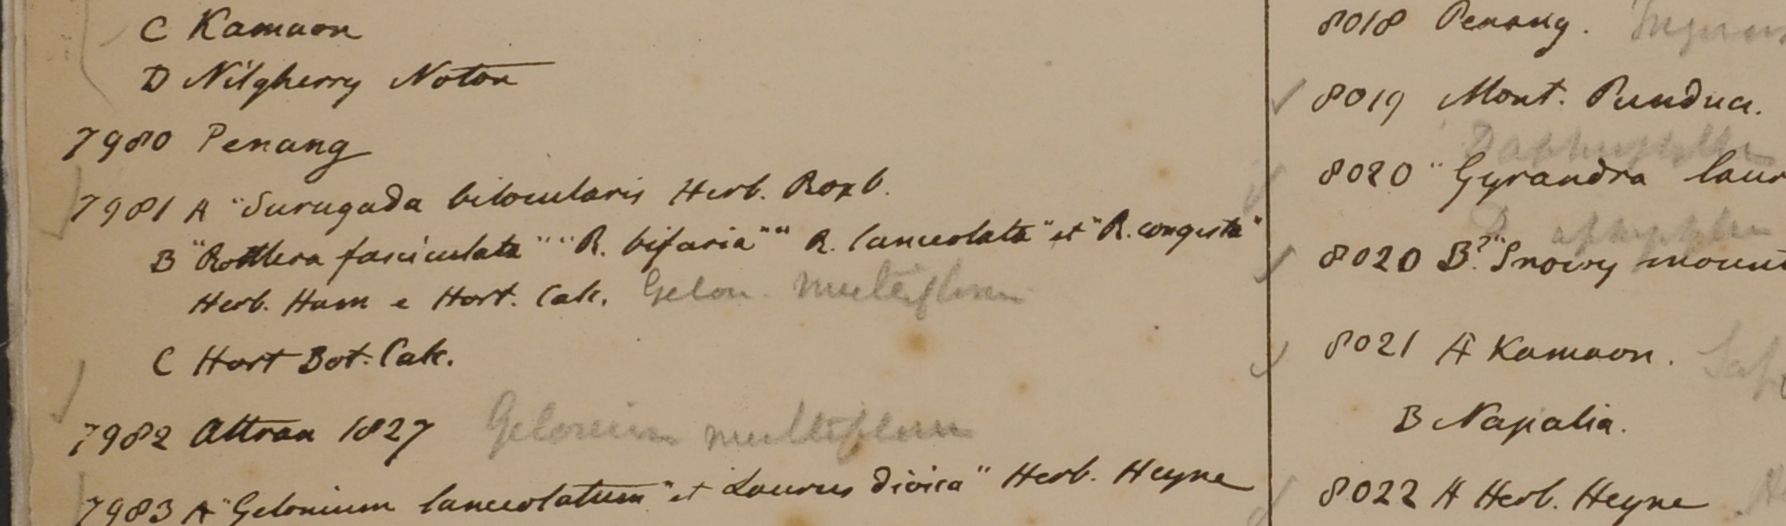 C Kamaon
D Nilgherry Noton
7980 Penang
7981 A "Surugada bilocularis Herb. Roxb.
B "Rottlera fasciculata" "R. bifaria" "R. lanceolata" et "R. congesta"
Herb. Ham e Hort. Calc. Gelon. multiflorum
C Hort Bot. Calc.
7982 Attran 1827 Gelonium multiflorum
7983 A "Gelonium lanceolatum" et Laurus dioica" Herb. Heyne
8018 Penang.
8019 Mont. Pundua.
8020 "Gyrandra laur
8020 B? "Snowy mount
8021 A Kamaon.
B Napalia.
8022 A Herb. Heyne